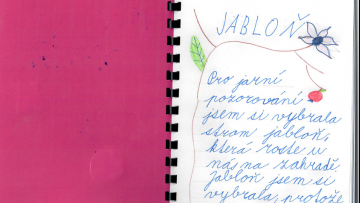 JABLOŇ
Pro jarní
pozorování
jsem si vybrala
strom jabloň,
která roste u
nás na zahradě.
Jabloň jsem si
vybrala, protože